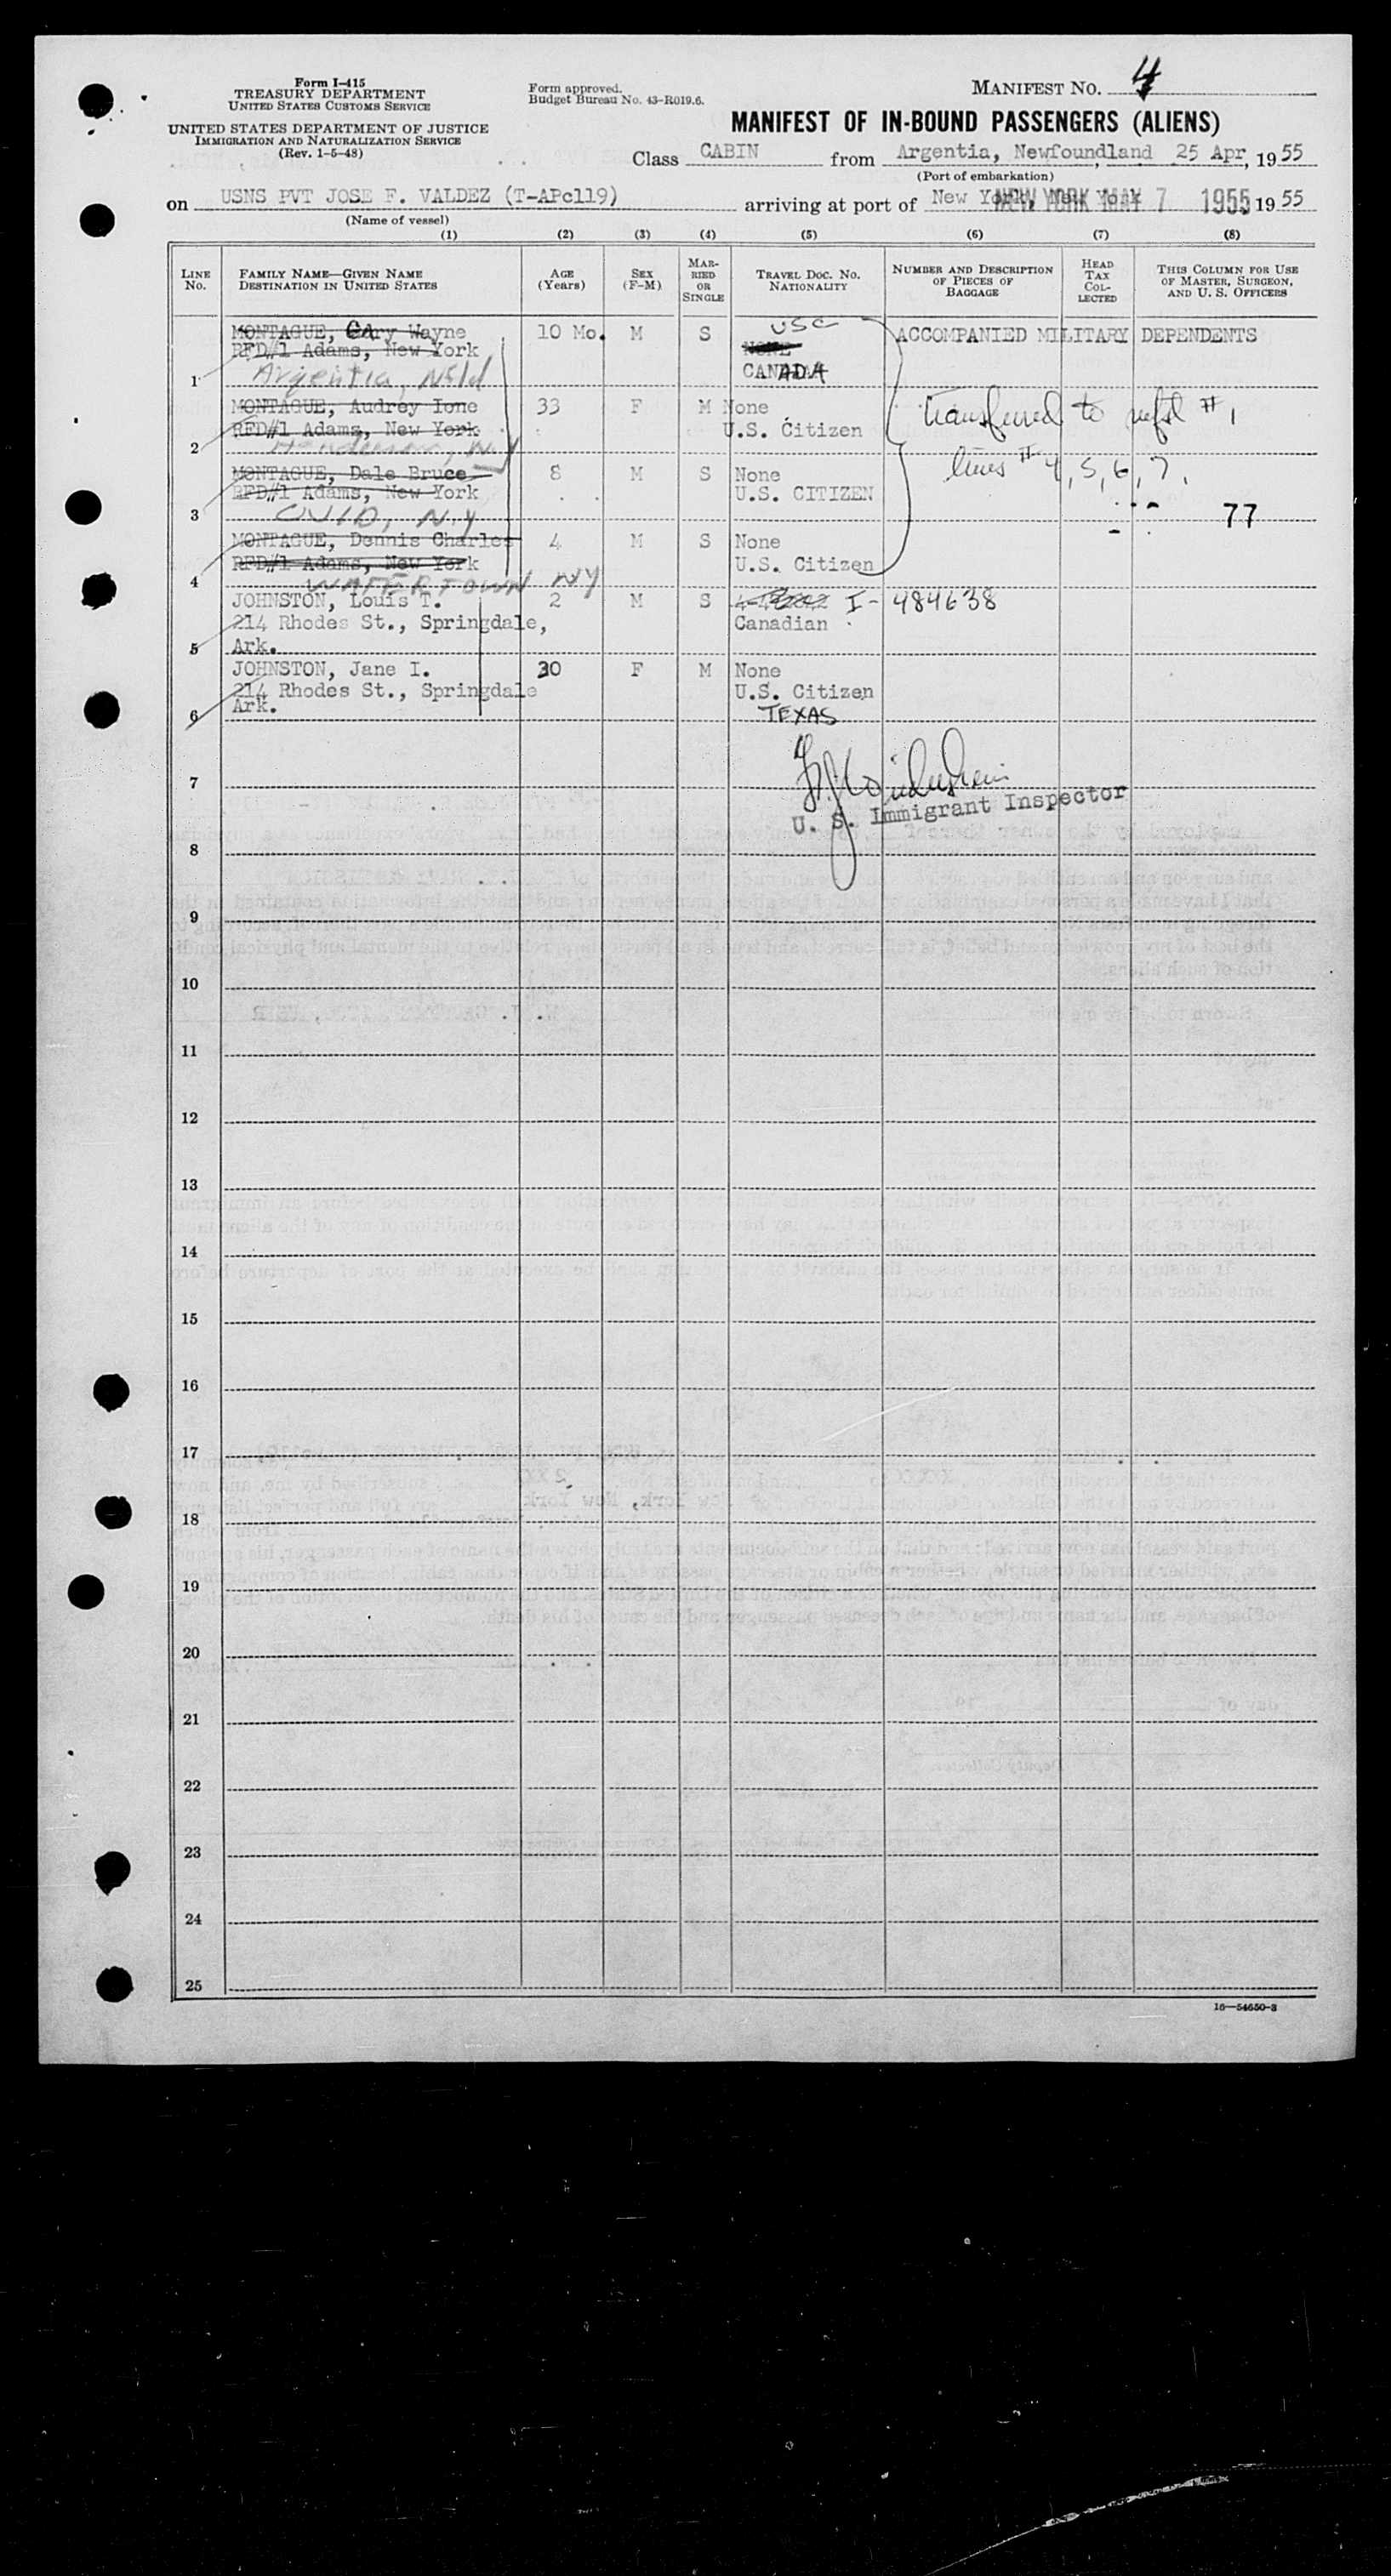 Form I-415
TREASURY DEPARTMENT
UNITED STATES CUSTOMS SERVICE
UNITED STATES DEPARTMENT OF JUSTICE
IMMIGRATION AND NATURALIZATION SERVICE
(Rev. 1-5-48)
Form approved.
Budget Bureau No. 43-R019.6.
MANIFEST NO. 4
MANIFEST OF IN-BOUND PASSENGERS (ALIENS)
Class CABIN from Argentia, Newfoundland 25 Apr, 1955
(Port of embarkation)
on USNS PVT JOSE F. VALDEZ (T-APc119) arriving at port of New York, New York 1955
NEW YORK MAY 7 1955
(Name of vessel)
(1) (2) (3) (4) (5) (6) (7) (8)
LINE NO.
FAMILY NAME—GIVEN NAME
DESTINATION IN UNITED STATES
AGE (Years)
SEX (F-M)
MARRIED OR SINGLE
TRAVEL DOC. NO.
NATIONALITY
NUMBER AND DESCRIPTION OF PIECES OF BAGGAGE
HEAD TAX COLLECTED
THIS COLUMN FOR USE OF MASTER, SURGEON, AND U. S. OFFICERS
MONTAGUE, Gary Wayne 10 Mo. M S USC ACCOMPANIED MILITARY DEPENDENTS
RFD#1 Adams, New York NONE
1 Argentia, Nfld CANADA
MONTAGUE, Audrey Ione 33 F M None Transferred to mfst #1
RFD#1 Adams, New York U.S. Citizen
2 Henderson, N.Y
lines # 4, 5, 6, 7,
MONTAGUE, Dale Bruce 8 M S None
RFD#1 Adams, New York U.S. CITIZEN
3 OVID, N.Y 77
MONTAGUE, Dennis Charles 4 M S None
RFD#1 Adams, New York U.S. Citizen
4 WATERTOWN NY
JOHNSTON, Louis T. 2 M S I-484638
214 Rhodes St., Springdale, Canadian
5 Ark.
JOHNSTON, Jane I. 30 F M None
214 Rhodes St., Springdale U.S. Citizen
6 Ark. TEXAS
7
U. S. Immigrant Inspector
8
9
10
11
12
13
14
15
16
17
18
19
20
21
22
23
24
25
16—54650-3